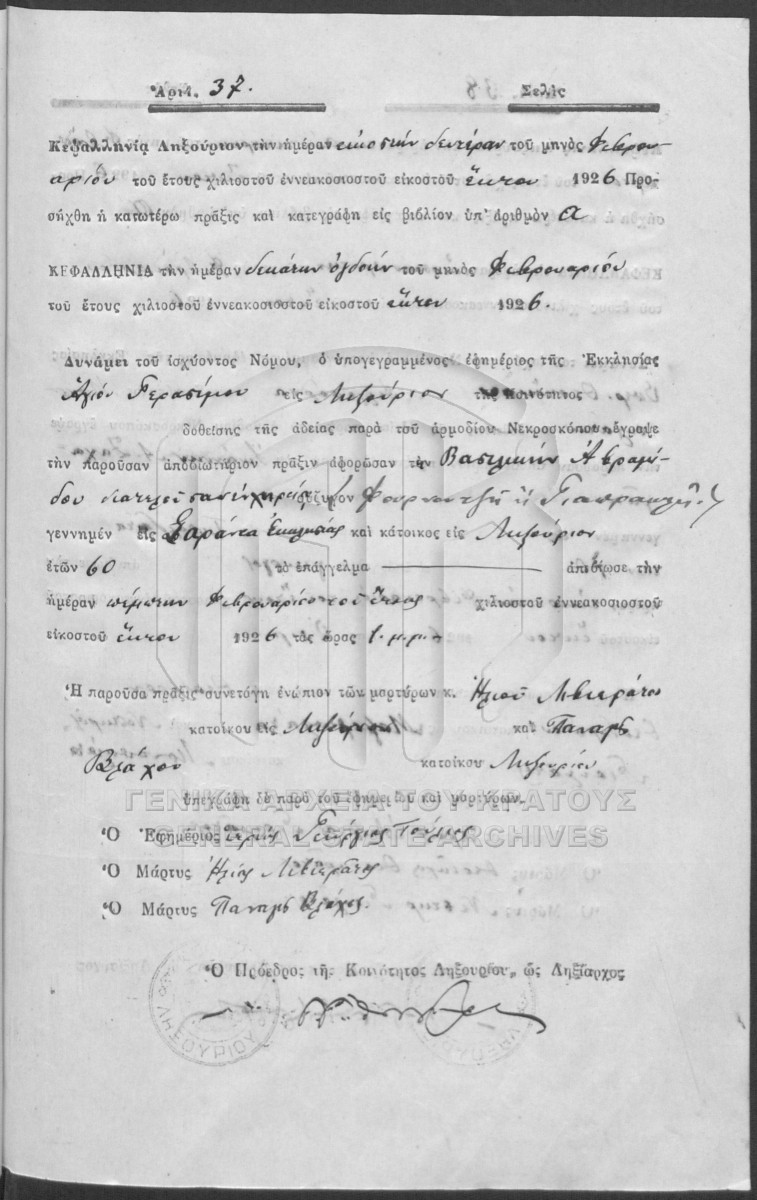 Ἀριθ. 37. Σελὶς
Κεφαλληνία Ληξούριον τὴν ἡμέραν εἰκοστὴν δευτέραν τοῦ μηνὸς Φεβρου-
αρίου τοῦ ἔτους χιλιοστοῦ ἐννεακοσιοστοῦ εἰκοστοῦ ἕκτου 1926 Προ-
σήχθη ἡ κατωτέρω πρᾶξις καὶ κατεγράφη εἰς βιβλίον ὑπ' ἀριθμὸν α
ΚΕΦΑΛΛΗΝΙΑ τὴν ἡμέραν δεκάτην ὀγδόην τοῦ μηνὸς Φεβρουαρίου
τοῦ ἔτους χιλιοστοῦ ἐννεακοσιοστοῦ εἰκοστοῦ ἕκτου 1926.
Δυνάμει τοῦ ἰσχύοντος Νόμου, ὁ ὑπογεγραμμένος ἐφημέριος τῆς Ἐκκλησίας
Ἁγίου Γερασίμου εἰς Ληξούριον τῆς Κοινότητος
δοθείσης τῆς ἀδείας παρὰ τοῦ ἁρμοδίου Νεκροσκόπου ἔγραψε
τὴν παροῦσαν ἀποβιωτήριον πρᾶξιν ἀφορῶσαν τὴν Βασιλικὴν Ἀβραμί-
δου σύζυγον
γεννημέν εἰς Σαράντα Ἐκκλησίας καὶ κάτοικος εἰς Ληξούριον
ἐτῶν 60 τὸ ἐπάγγελμα — ἀπεβίωσε τὴν
ἡμέραν πέμπτην Φεβρουαρίου τοῦ ἔτους χιλιοστοῦ ἐννεακοσιοστοῦ
εἰκοστοῦ ἕκτου 1926 τὰς ὥρας 1. μ.μ.
Ἡ παροῦσα πρᾶξις συνετάγη ἐνώπιον τῶν μαρτύρων κ. Ἠλιοῦ
κατοίκου εἰς Ληξούριον καὶ Παναγῆ
Βλάχου κατοίκου Ληξουρίου
ὑπεγράφη δὲ παρὰ τοῦ ἐφημερίου καὶ μαρτύρων.
ΓΕΝΙΚΑ ΑΡΧΕΙΑ ΤΟΥ ΚΡΑΤΟΥΣ
GENERAL STATE ARCHIVES
Ὁ Ἐφημέριος Ἱερεὺς Γεώργιος
Ὁ Μάρτυς Ἠλίας
Ὁ Μάρτυς Παναγῆς Βλάχος.
Ὁ Πρόεδρος τῆς Κοινότητος Ληξουρίου, ὡς Ληξίαρχος
ΛΗΞΟΥΡΙΟΥ